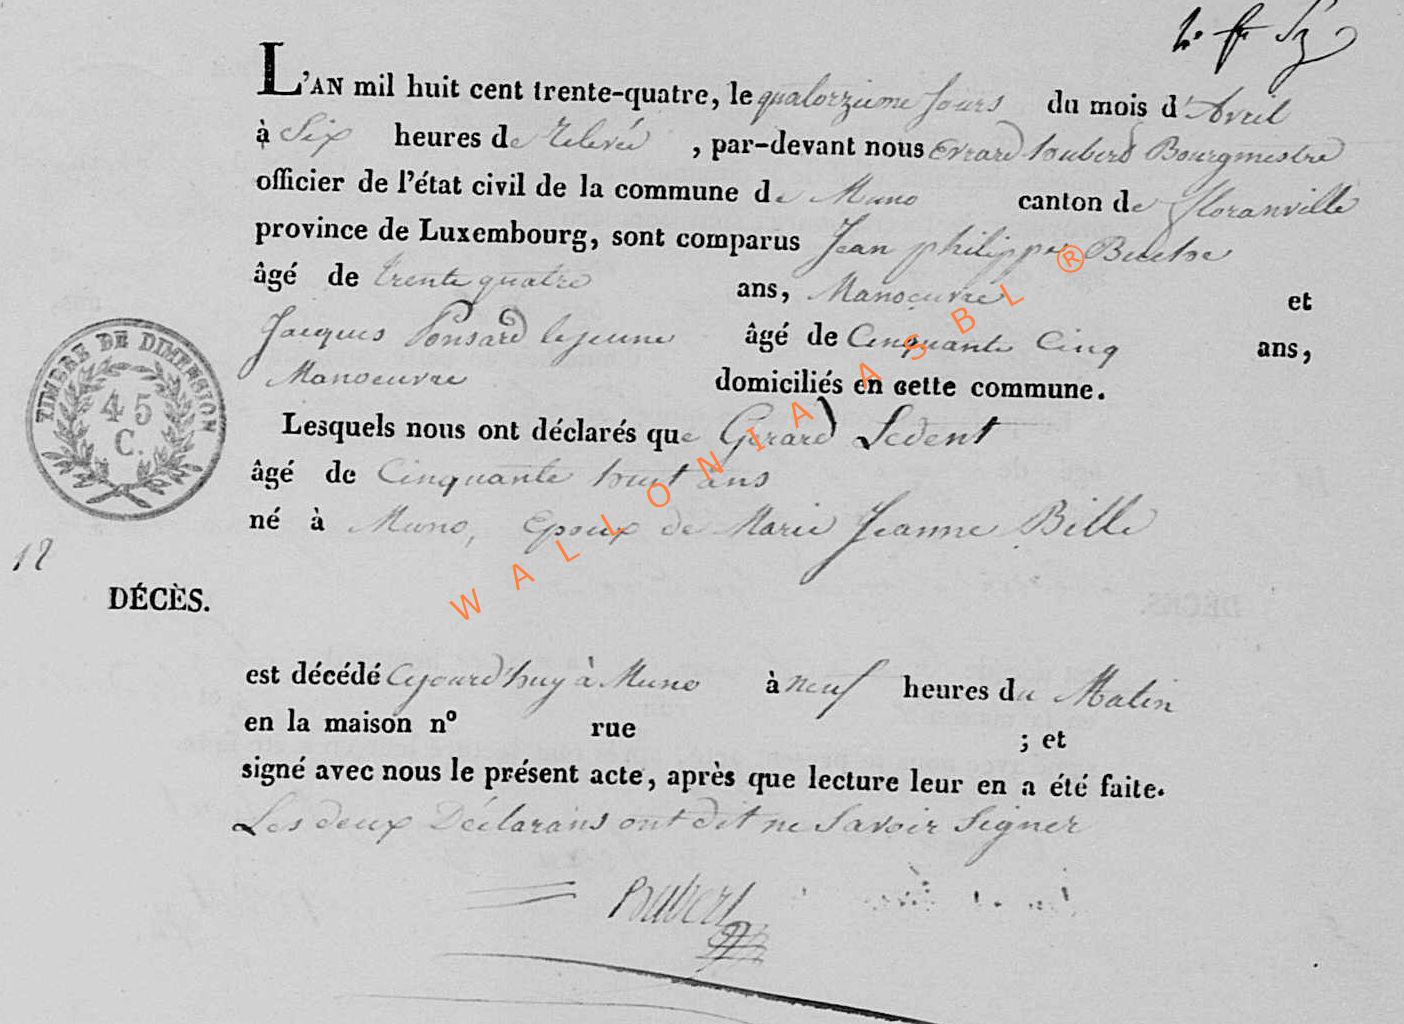 L'AN mil huit cent trente-quatre, le quatorzieme Jours du mois d'Avril
à Six heures de relevé, par-devant nous Evrard hubert Bourgmestre
officier de l'état civil de la commune de Muno canton de floranville
province de Luxembourg, sont comparus Jean philippe
âgé de trente quatre ans, Manoeuvre et
Jacques Ponsard lejeune âgé de Cinquante Cinq ans,
Manoeuvre domiciliés en cette commune.
Lesquels nous ont déclarés que Gerard Ledent
âgé de Cinquante huit ans
né à Muno, Epoux de Marie Jeanne Bille
TIMBRE DE DIMENSION
45
C.
12
DÉCÈS.
est décédé Cejourd'huy à Muno à neuf heures du Matin
en la maison nº rue ; et
signé avec nous le présent acte, après que lecture leur en a été faite.
Les deux Déclarans ont dit ne Savoir Signer
hubert
WALLONIA ASBL ®